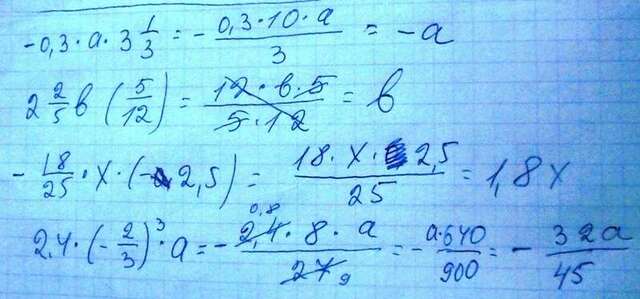 -0,3·a·3 1/3 = -(0,3·10·a)/3 = -a
2 2/5 b (5/12) = (12·b·5)/(5·12) = b
-18/25·x·(-2,5) = (18·x·2,5)/25 = 1,8x
2,4·(-2/3)^3·a = -(2,4 0,8·8·a)/(27 9) = -(a·640)/900 = -32a/45